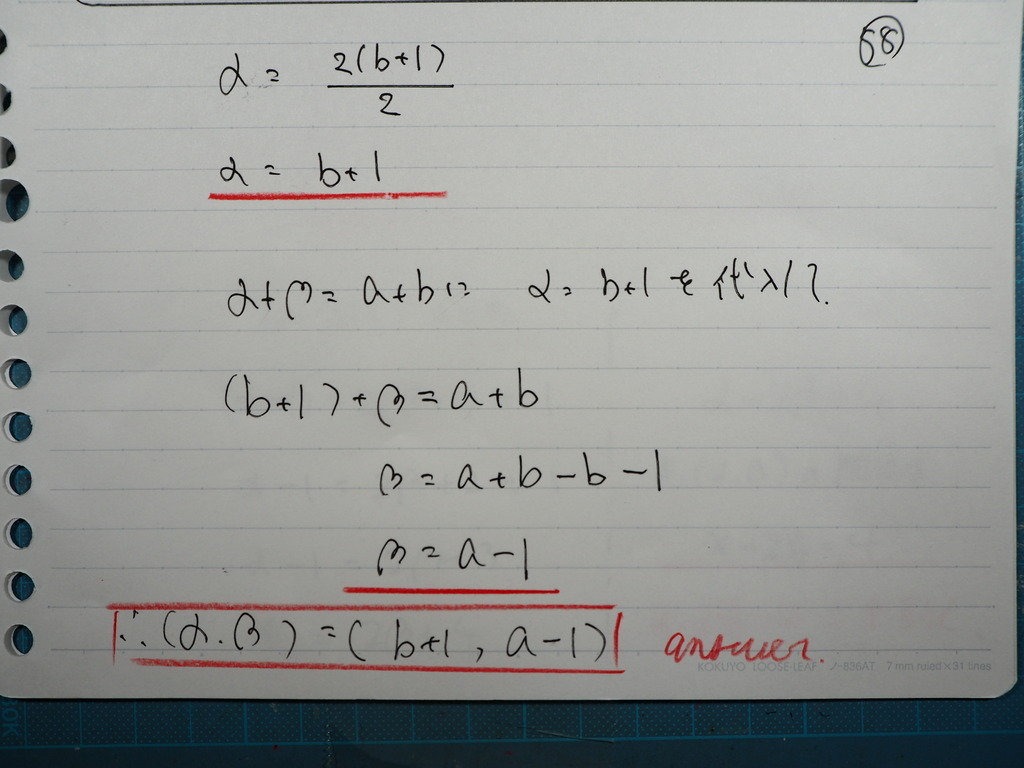 58
α = 2(b+1)/2
α = b+1
α+β = a+b に α = b+1 を代入して.
(b+1)+β = a+b
β = a+b-b-1
β = a-1
∴(α.β) = (b+1, a-1) answer.
KOKUYO LOOSE-LEAF ノ-836AT 7 mm ruled×31 lines